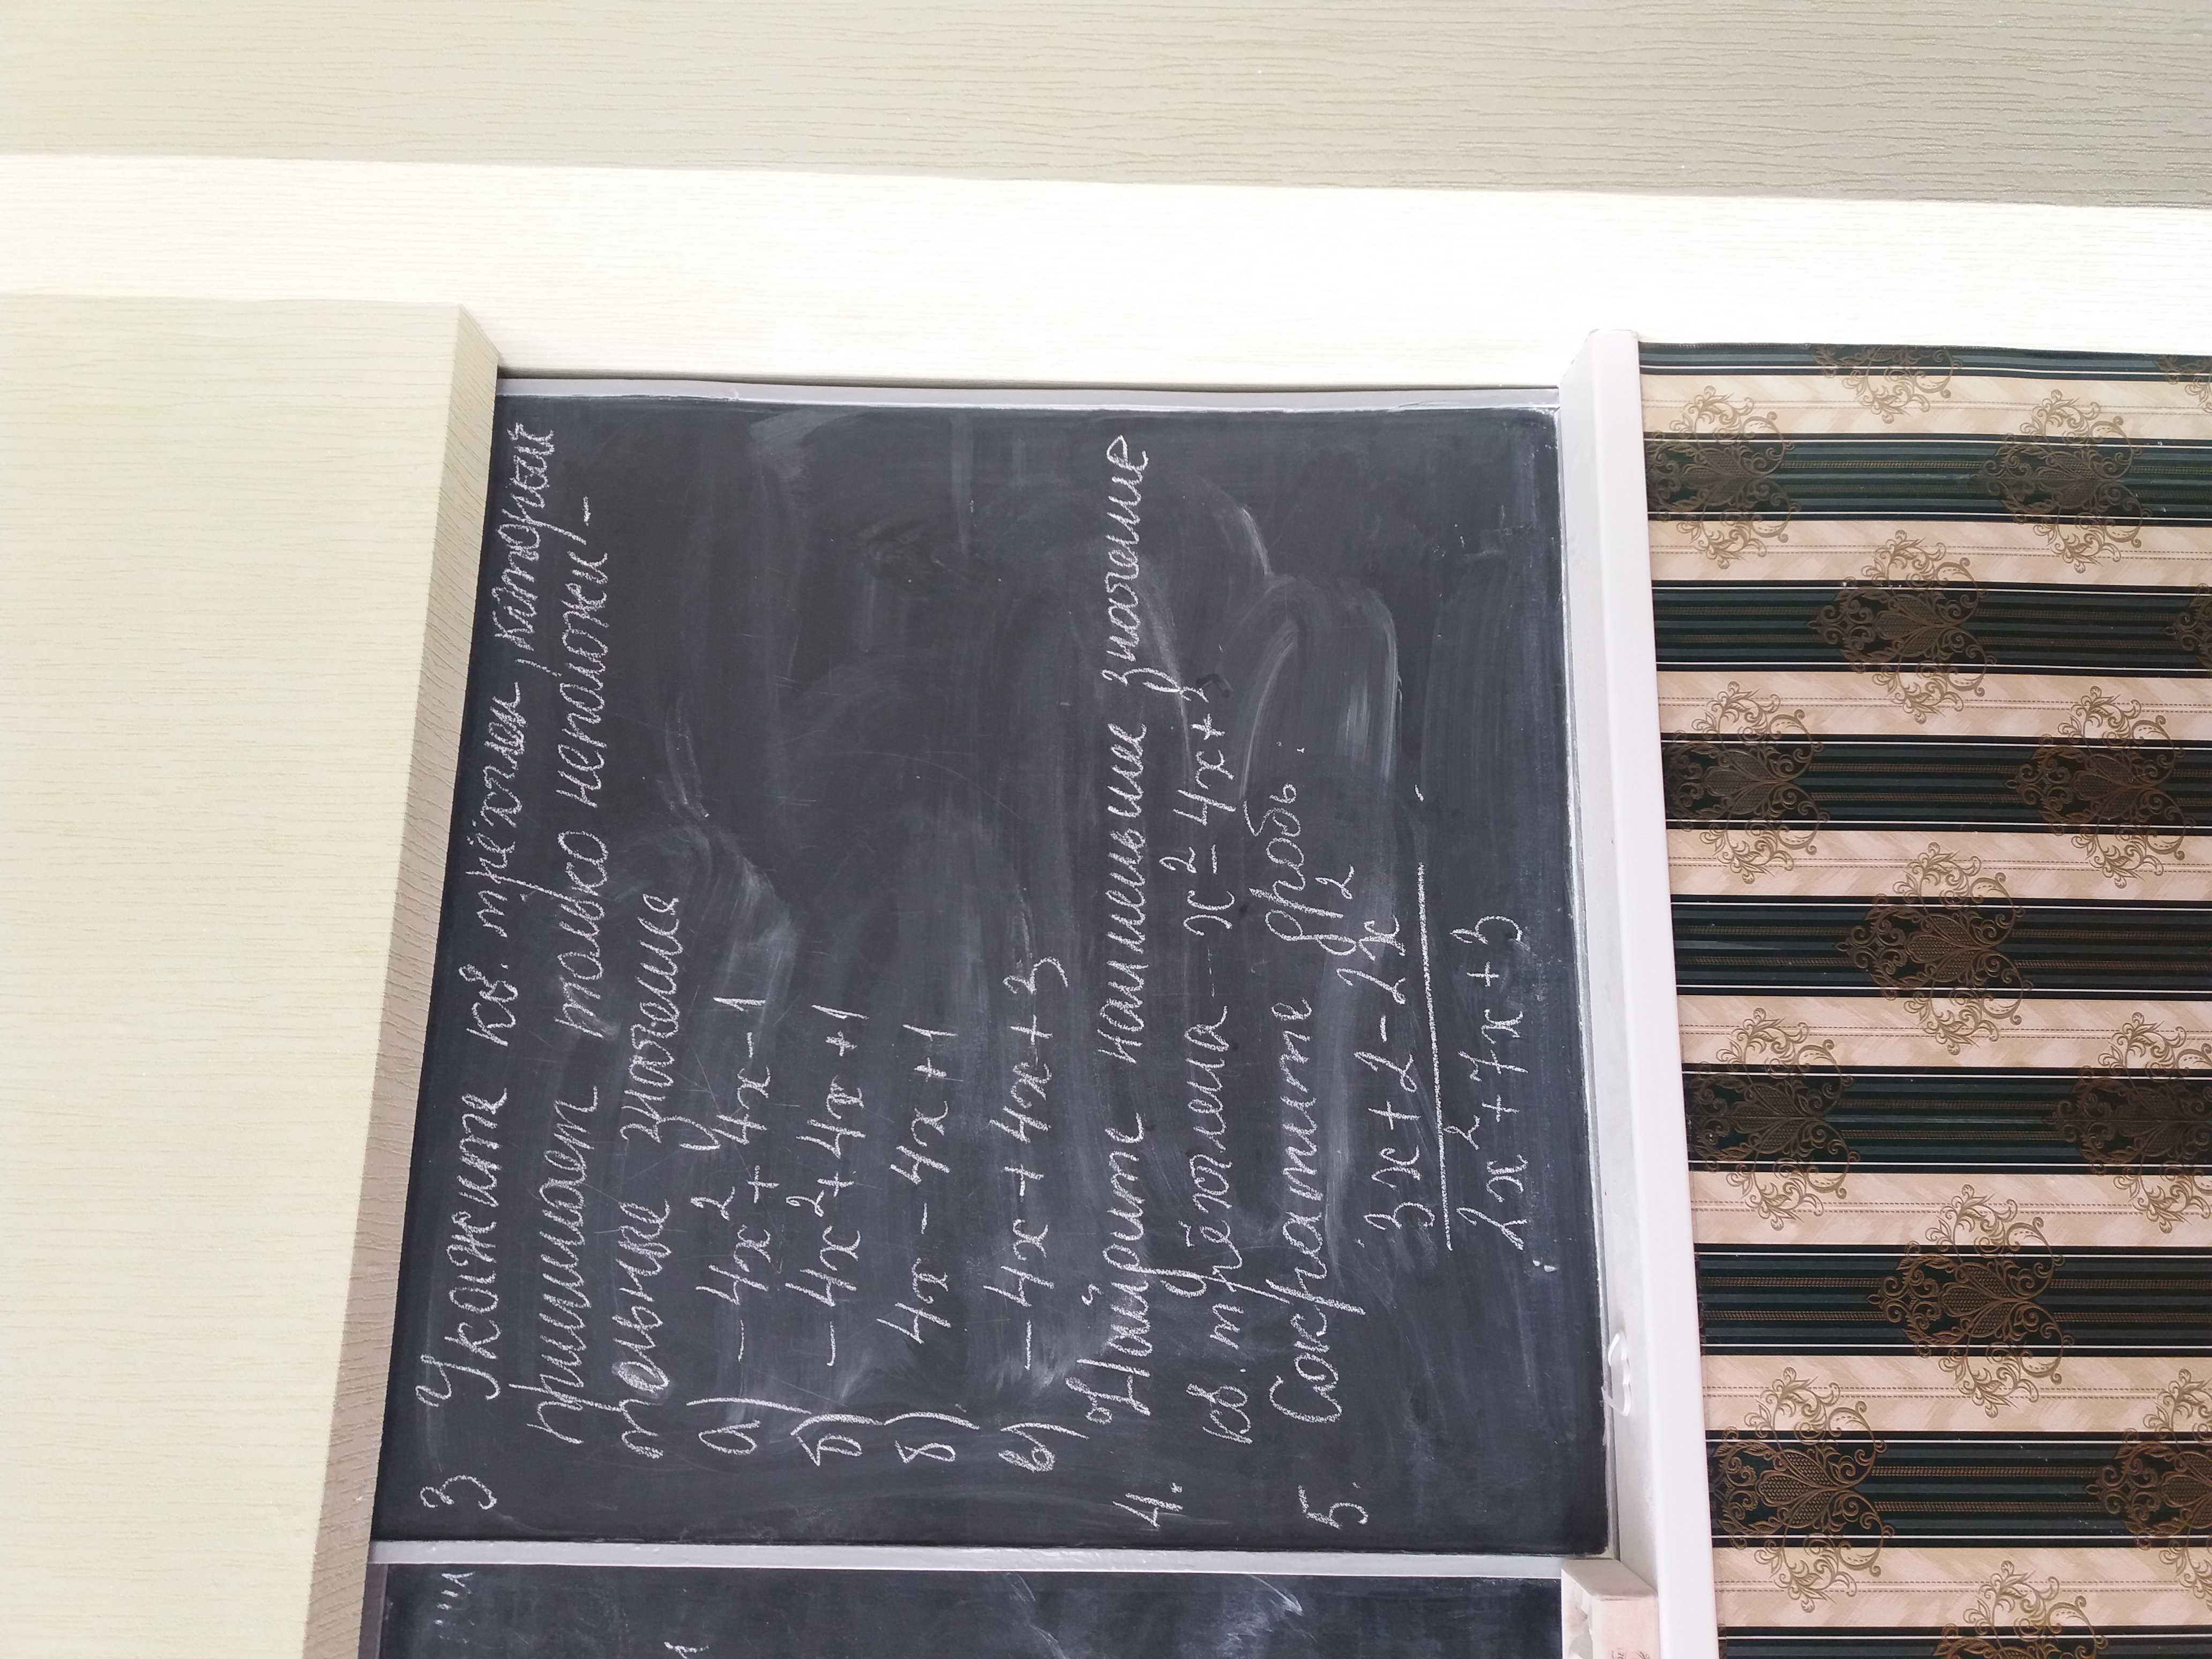 3 Укажите кв. трёхчлен, который
принимает только неположи-
тельные значения
а) -4x² + 4x - 1
б) -4x² + 4x + 1
б) 4x - 4x + 1
в) -4x + 4x + 3
4. Найдите наименьшие значение
кв. трёхчлена x² - 4x + 3
5. Сократите дробь:
3x + 2 - 2x²
2x² + 7x + 3